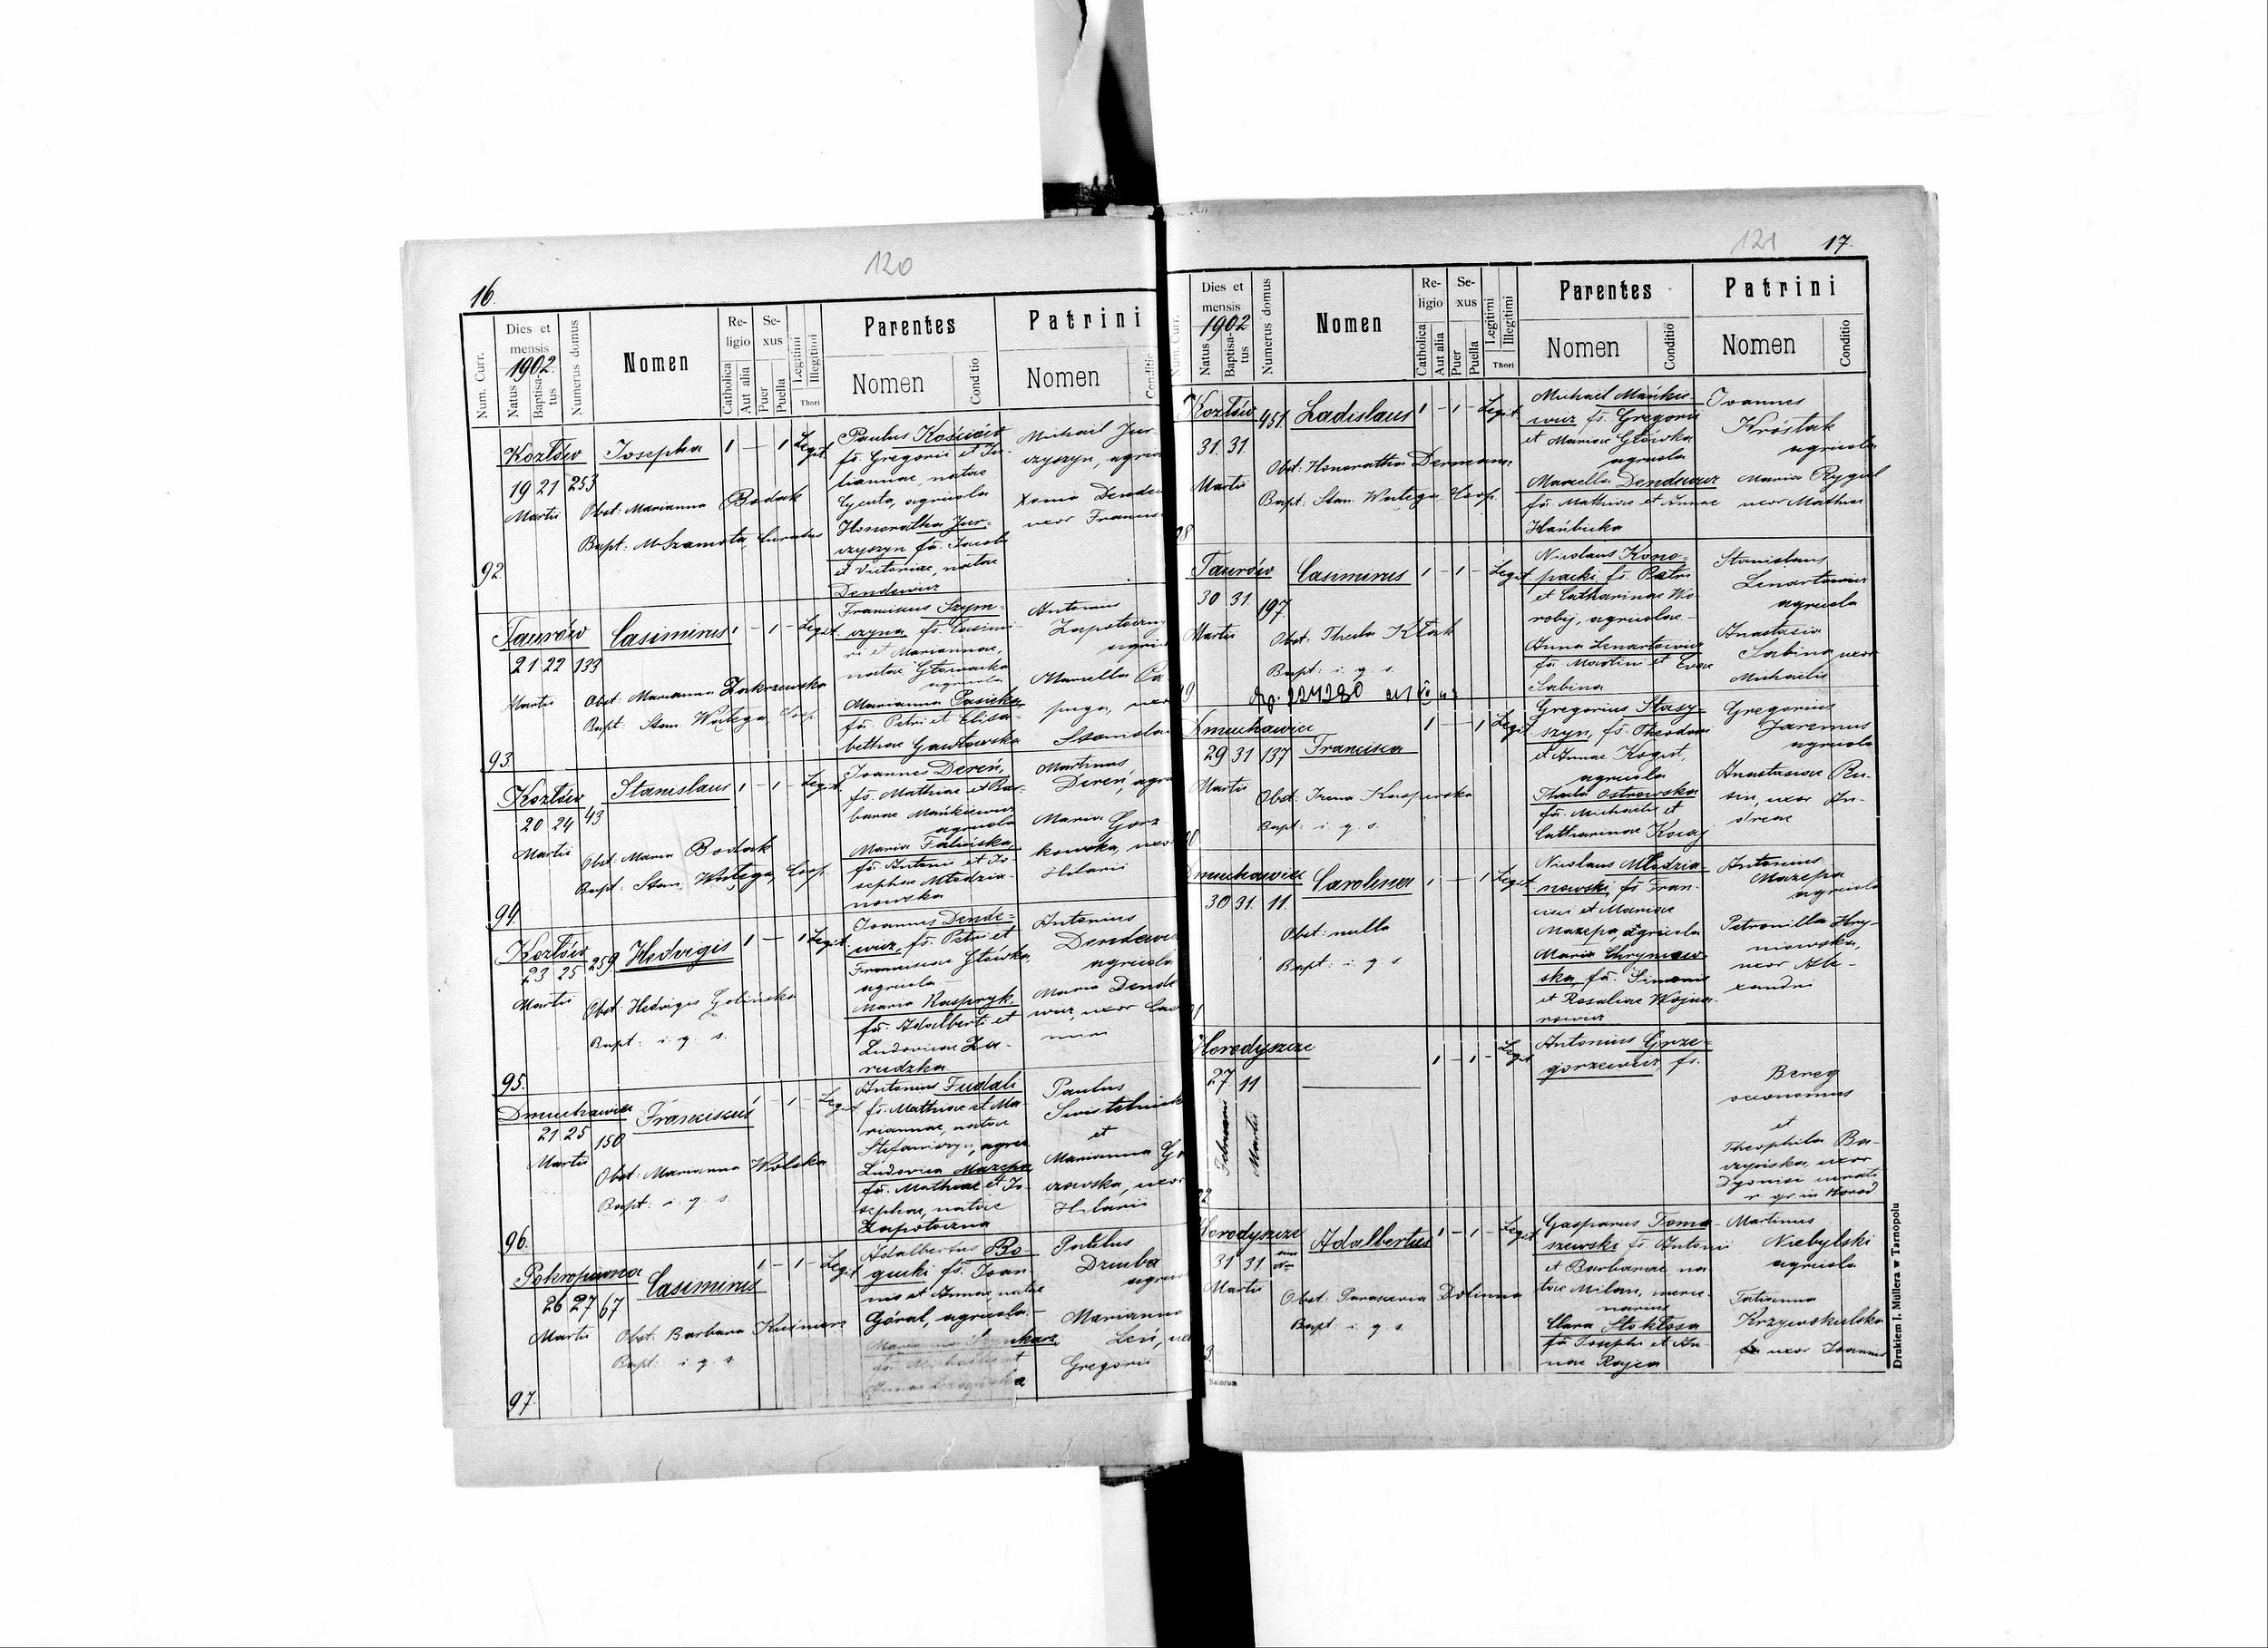 120
16.
Num. Curr.
Dies et mensis
1902
Natus
Baptisatus
Numerus domus
Nomen
Religio
Catholica
Aut alia
Sexus
Puer
Puella
Legitimi
Illegitimi
Thori
Parentes
Nomen
Conditio
Patrini
Nomen
92.
Kozłów
19 21 253
Martii
Josepha 1 — 1 Legit.
Obst: Marianna Bodak
Bapt: M. Szamota, Curatus
Paulus Kościów
fs. Gregorii et Ju-
liannae, natae
agricola
Honoratha Jur-
czyszyn fa. Jacobi
et Victoriae, natae
Dendewicz
Michael Jur-
czyszyn, agrico
Xenia Dende
uxor Francis
93.
Taurów
21 22 133
Martii
Casimirus 1 — 1 — Legit.
Obst: Marianna Zakrzewska
Bapt: Stan. Wartęga, Coop.
Franciscus Szym-
czyna, fs. Casimi-
ri et Mariannae,
natae Głowacka
agricola
Marianna Pasieka
fa. Petri et Elisa-
bethae Gawłowska
Antonius
Zapotoczny
agrico
Marcella Ca
puga, uxor
Stanisla
94.
Kozłów
20 24 43
Martii
Stanislaus 1 — 1 — Legit.
Obst. Maria Bodak
Bapt: Stan. Wartęga, Coop.
Joannes Dereń,
fs. Mathiae et Bar-
barae Mańkiewicz
agricola
Maria Falińska,
fa. Antonii et Jo-
sephae Młodzia-
nowska
Martinus
Dereń, agri
Maria Gorz-
kowska, uxor
Hilarii
95.
Kozłów
23 25 259
Martii
Hedvigis 1 — 1 Legit
Obst: Hedviges Golińska
Bapt: i. q. s.
Joannes Dende-
wicz, fs. Petri et
Franciscae Główka,
agricola
Maria Kaspryk,
fa. Adalberti et
Ludovicae Za-
rudzka
Antonius
Dendewi
agricola
Maria Dende
wicz, uxor Cas
imiri
96.
Dmuchawice
21 25 150
Martii
Franciscus 1 — Legit
Obst: Marianna Wolska
Bapt: i. q. s.
Antonius Fudali
fs. Mathiae et Ma-
riannae, natae
Stefaniszyn, agric
Ludovica Mazepa,
fa. Mathiae et Jo-
sephae, natae
Zapotoczna
Paulus
Swistelnick
et
Marianna Go
czowska, uxor
Hilarii
97.
Pokropiwna
26 27 67
Martii
Casimirus 1 — 1 — Legit
Obst: Barbara Kuśnierz
Bapt: i. q. s.
Adalbertus Ro-
gucki fs. Joan-
nis et Annae, natae
Góral, agricola
Marianna Szynkarz
fa. Michaelis et
Annae
Paulus
Dziuba
agrico
Marianna
Leń, ux
Gregorii
121
17.
Dies et mensis
1902
Natus
Baptisatus
Numerus domus
Nomen
Religio
Catholica
Aut alia
Sexus
Puer
Puella
Legitimi
Illegitimi
Thori
Parentes
Nomen
Conditio
Patrini
Nomen
Conditio
Kozłów
31 31 451
Martii
Ladislaus 1 — 1 — Legit
Obst: Honoratha Dermann
Bapt: Stan. Wartęga, Coop.
Michael Mańkie-
wicz fs. Gregorii
et Mariae Główka
agricola
Marcella Dendewicz
fa. Mathiae et Annae
Hańbicka
Joannes
Króstak
agricola
Maria Rygiel
uxor Mathiae
Taurów
30 31 197
Martii
Casimirus 1 — 1 — Legit
Obst. Thecla Kłak
Bapt: i. q. s.
Nicolaus Kono-
packi, fs. Petri
et Catharinae Wo-
robij, agricolae
Anna Lenartowicz
fa. Martini et Evae
Sabina
Stanislaus
Lenartowicz
agricola
Anastasia
Sabina, uxor
Michaelis
Dmuchawice
29 31 137
Martii
Francisca 1 — 1 Legit
Obst: Irena Kasperska
Bapt: i. q. s.
Gregorius Stasy-
szyn, fs. Theodori
et Annae Kogut,
agricola
Thecla Ostrowska
fa. Michaelis et
Catharinae Kocaj
Gregorius
Jaremus
agricola
Anastasia Ru-
sin, uxor An-
dreae
Dmuchawice
30 31. 11.
Carolina 1 — 1 Legit
Obst: nulla
Bapt: i. q. s.
Nicolaus Młodzia-
nowski, fs. Fran-
cisci et Mariae
Mazepa, agricola
Maria Chryniow-
ska, fa. Simonis
et Rosaliae Wojna-
rowicz
Antonius
Mazepa
agricola
Petronilla Hry-
niowska,
uxor Ale-
xandri
Horodyszcze
27 11
Februarii Martii
1 — 1 — Legit
Antonius Grze-
gorzewicz, fs.
Bereg
oeconomus
et
Theophila Ba-
czyńska, uxor
Dyonisi curati
r. gr. in Horod.
Horodyszcze
31 31
Martii
Adalbertus 1 — 1 — Legit
Obst: Parascevia Dolinna
Bapt: i. q. s.
Gasparus Toma-
szewski fs. Antonii
et Barbarae na-
tae Milan, merce-
narius
Clara Stokłosa
fa Josephi et An-
nae Rajca
Martinus
Niebylski
agricola
Tatianna
Krzywokulska
uxor Joannis
Natorum
Drukiem J. Müllera w Tarnopolu